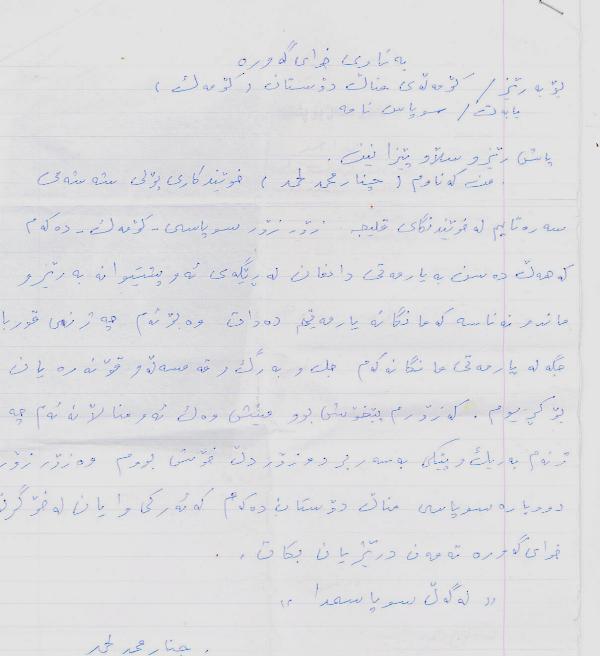 بەناوی خوای گەورە
بۆ بەڕێز / کۆمەڵەی مناڵ دۆستان ( کۆمەك )
بابەت / سوپاس نامە
پاش ڕێزو سڵاو پێزانین .
. من کەناوم ( چنار محمد ) خوێندکاری پۆلی شەشەی
سەرەتاییم لەخوێندنگای قلیجە زۆر زۆر سوپاسی - کۆمەك - دەکەم
کەهەڵ دەسن بەیارمەتی دانمان لەڕێگەی ئەو پشتیوانە بەڕێزو
ماندو نەناسە کەمانگانە یارمەتیم دەدات وە بۆ ئەم جەژنەی قوربا
جگە لە یارمەتی مانگانەکەم جل و بەرگ و قەمسەڵەو قۆنەرە یان
بۆ کڕیوم . کەزۆرم پێخۆش بوو منیش وەك ئەو مناڵانە ئەم جە
ژنەم بەڕێك وپێکی بەسەر برد وزۆر دڵ خۆش بووم وەزۆر زۆر
دووبارە سوپاسی مناڵ دۆستان دەکەم کەئەرکی وایان لەخۆ گرت
خوای گەورە تەمەن درێژیان بکات . .
« لەگەڵ سوپاسمدا »
. چنار محمد